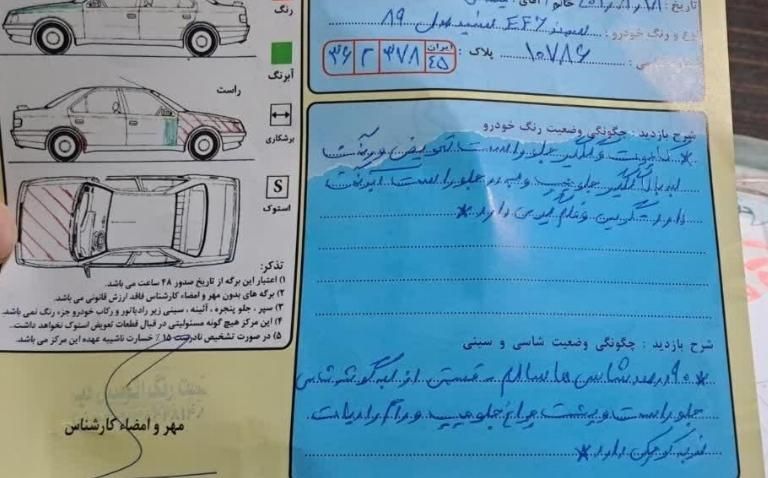 رنگ
آبرنگ
راست
برشکاری
S
استوک
تذکر:
۱) اعتبار این برگه از تاریخ صدور ۴۸ ساعت می باشد.
۲) برگه های بدون مهر و امضاء کارشناس فاقد ارزش قانونی می باشد.
۳) سپر ، جلو پنجره ، آئینه ، سینی زیر رادیاتور و رکاب خودرو جزء رنگ نمی باشد.
۴) این مرکز هیچ گونه مسئولیتی در قبال قطعات تعویض استوک نخواهد داشت.
۵) در صورت تشخیص نادرست ۱۵ ٪ خسارت ناشیه عهده این مرکز می باشد.
مهر و امضاء کارشناس
تاریخ : خانم / آقای :
نوع و رنگ خودرو : سمند EF7 سفید مدل ۸۹
۱۰۷۸۶ پلاک : ایران ۴۵ ۳۷۸ ۲ ۳۶
شرح بازدید : چگونگی وضعیت رنگ خودرو
* کاپوت و گلگیر جلو راست تعویض ورنگ
گلگیر جلو چپ و درب جلو راست آبرنگ
دارد
شرح بازدید : چگونگی وضعیت شاسی و سینی
* ۹۰ درصد شاسی ها سالم - قسمتی از لب گوشتر شاسی
جلو راست و پشت چراغ جلو چپ و رام رادیات
ضربه کوچک دارد *